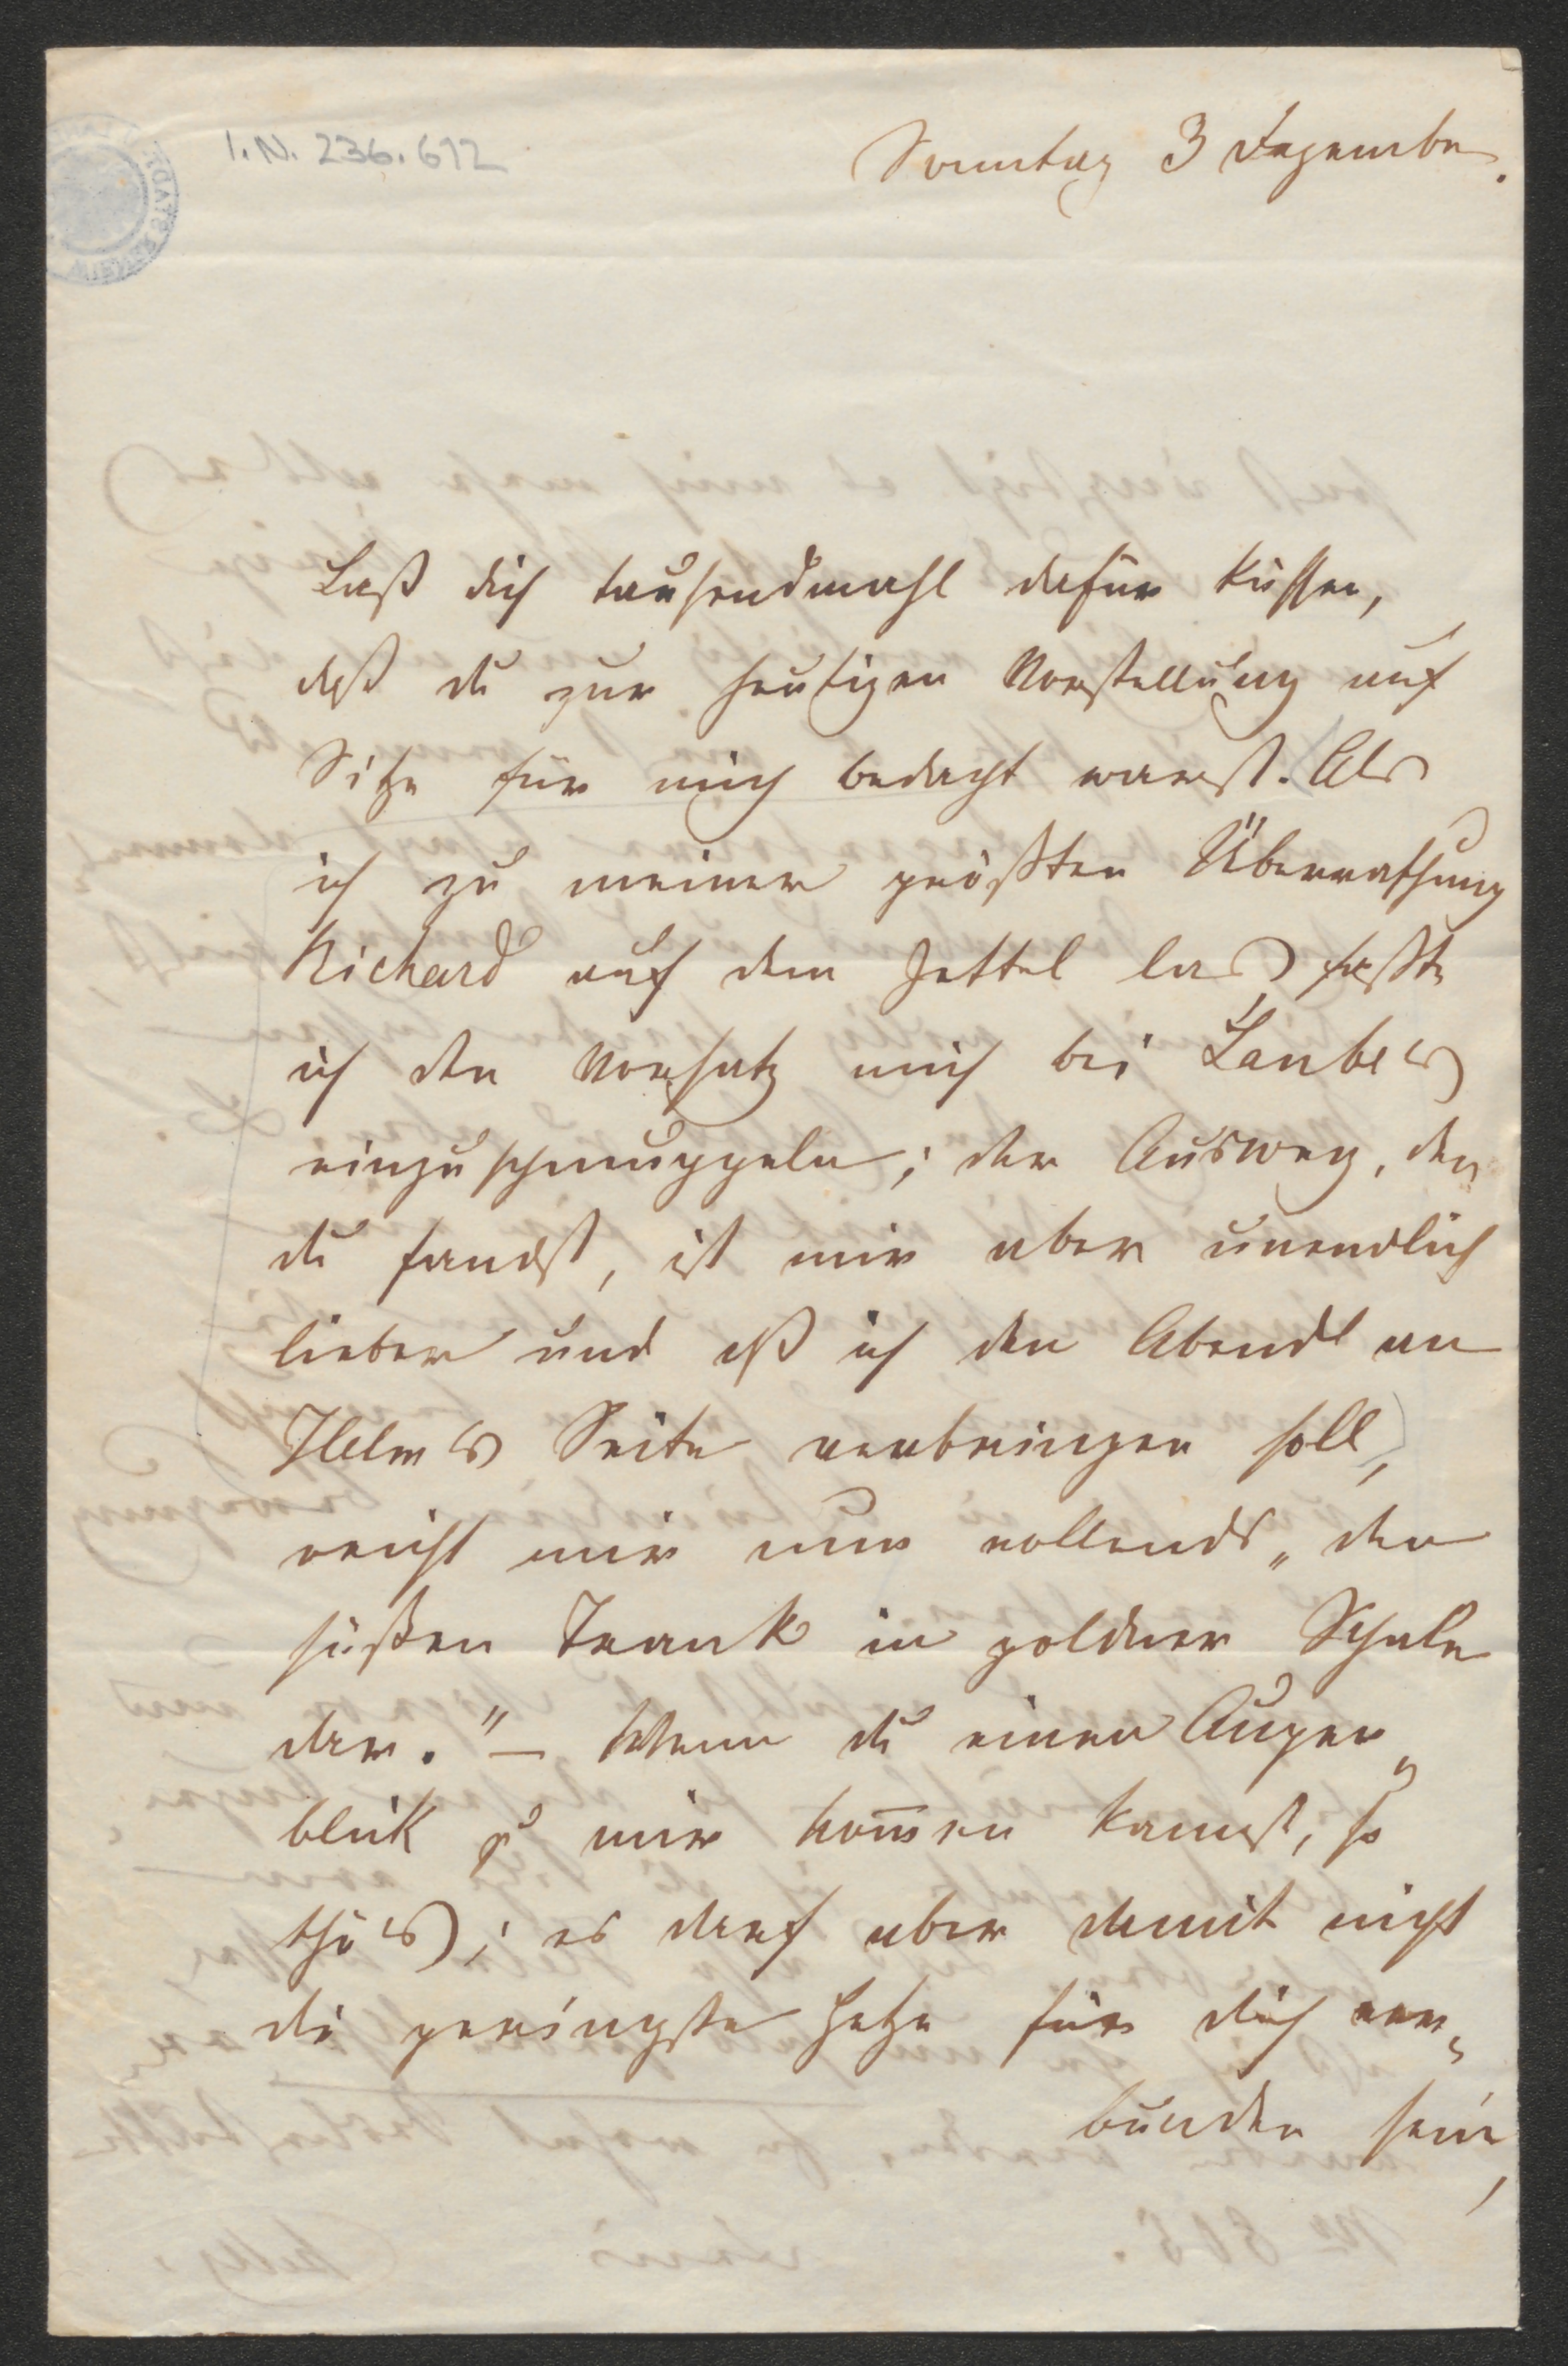 I.N. 236.612
Sonntag 3 Dezember.
Laß dich tausendmahl dafür küssen,
daß du zur heutigen Vorstellung auf
Sitze für mich bedacht warst. Als
ich zu meiner größten Überraschung
Richard auf dem Zettel las faßte
ich den Vorsatz mich bei Laubes
einzuschmuggeln; der Ausweg, den
du fandst, ist mir aber unendlich
lieber und daß ich den Abend an
Seite verbringen soll,
reicht mir nun vollends „den
süßen Trank in goldner Schale
dar." – Wenn du einen Augen„
blick zu mir kom̅en kannst, so
thu es; es darf aber damit nicht
die geringste Hetze für dich ver„
bunden sein,